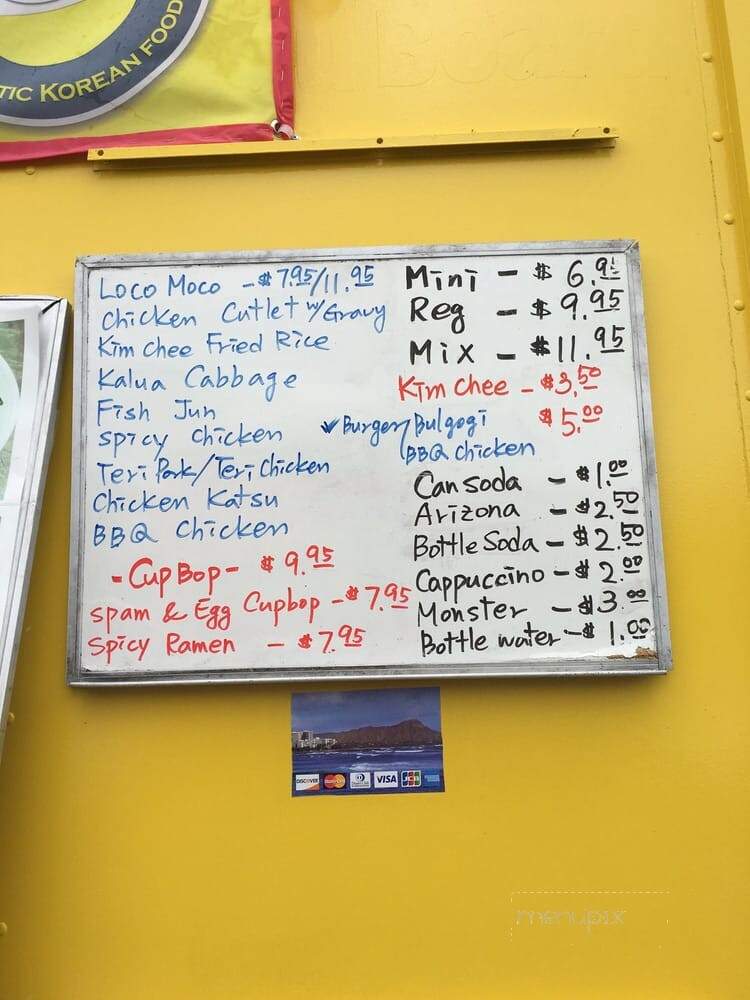 TIC KOREAN FOOD
Loco Moco - $7.95/11.95
Chicken Cutlet w/Gravy
Kim chee Fried Rice
Kalua Cabbage
Fish Jun
spicy chicken
Teri Pork/Teri Chicken
Chicken Katsu
BBQ Chicken
-Cup Bop- $9.95
spam & Egg Cupbop - $7.95
Spicy Ramen - $7.95
Mini - $6.95
Reg - $9.95
Mix - $11.95
Kim chee - $3.50
$5.00
Burger/Bulgogi
BBQ chicken
Can soda - $1.00
Arizona - $2.50
Bottle Soda - $2.50
Cappuccino - $2.00
Monster - $3.00
Bottle water - $1.00
DISCOVER MasterCard VISA JCB
menupix